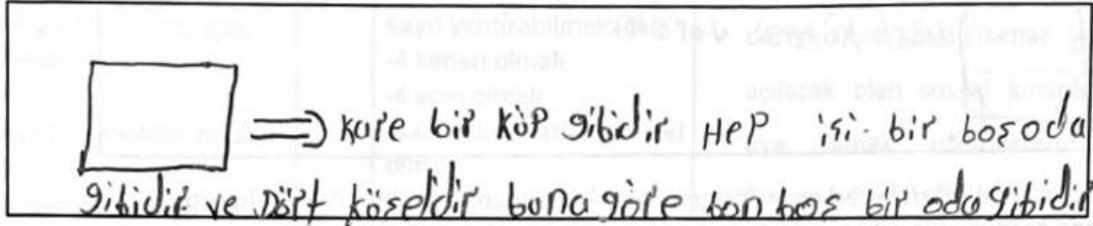 kare bir küp gibidir HeP içi bir boş oda
gibidir ve Dört köşeldir bana göre bon boş bir oda gibidir